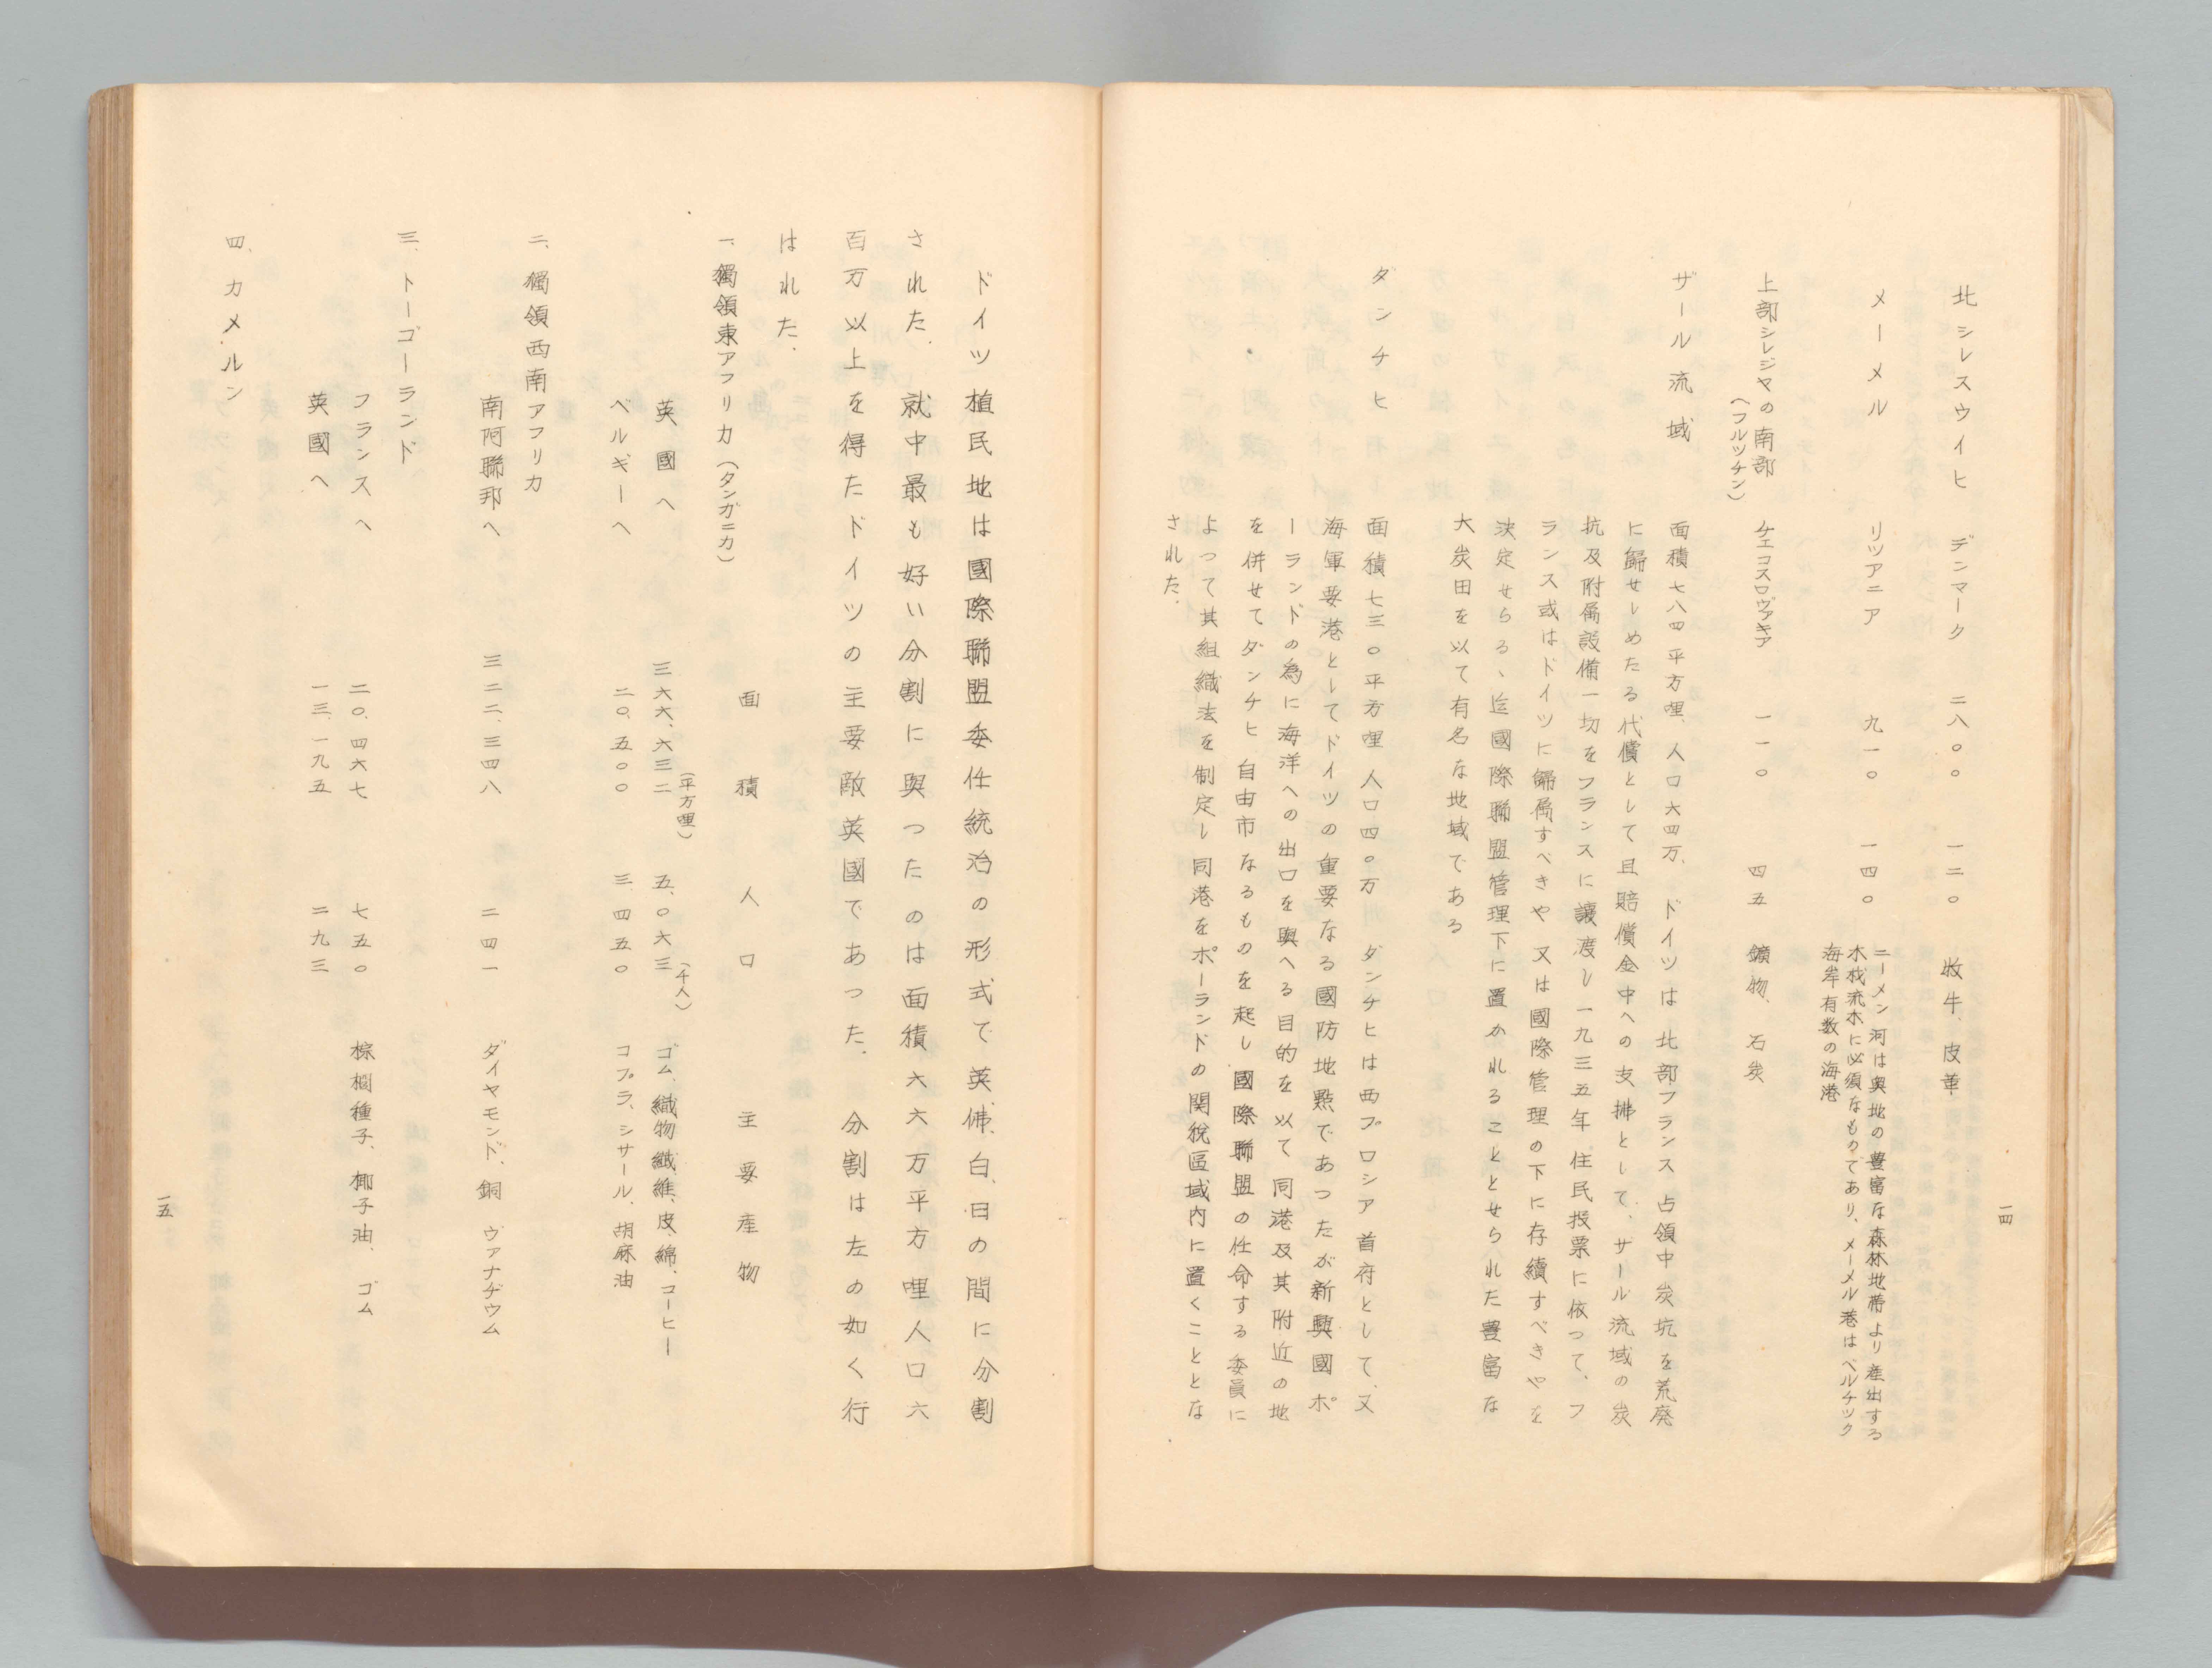 北シレスウイヒ　デンマーク　二八〇〇　一二〇　牧牛、皮革
メーメル　リツアニア　九一〇　一四〇　ニーメン河は奥地の豊富な森林地帯より産出する
木材流木に必須なものであり、メーメル港はベルチック
海岸有数の海港
上部シレジヤの南部　チェコスロヴァキア　一一〇　四五　鑛物、石炭
（フルツチン）
ザール流域　面積七八四平方哩、人口六四万、ドイツは北部フランス占領中炭坑を荒廃
に歸せしめたる代償として且賠償金中への支拂として、サール流域の炭
抗及附属設備一切をフランスに讓渡し一九三五年住民投票に依つて、フ
ランス或はドイツに歸属すべきや又は國際管理の下に存續すべきやを
決定せらるゝ迄國際聯盟管理下に置かれることとせられた豊富な
大炭田を以て有名な地域である
ダンチヒ　面積七三〇平方哩　人口四〇万　ダンチヒは西プロシア首府として、又
海軍要港としてドイツの重要なる國防地點であつたが新興國ポ
ーランドの為に海洋への出口を與へる目的を以て同港及其附近の地
を併せてダンチヒ自由市なるものを起し國際聯盟の任命する委員に
よつて其組織法を制定し同港をポーランドの関税區域内に置くこととな
された．
一四
ドイツ植民地は國際聯盟委任統治の形式で英、佛、白、日の間に分割
された．就中最も好い分割に與つたのは面積六六万平方哩人口六
百万以上を得たドイツの主要敵英國であつた．分割は左の如く行
はれた．
面積　人口　主要産物
一、獨領東アフリカ（タンガニカ）
（平方哩）　（千人）
英國へ　三六六、六三二　五、〇六三　ゴム、織物纎維、皮、綿、コーヒー
ベルギーへ　二〇、五〇〇　三、四五〇　コプラ、シサール、胡麻油
二、獨領西南アフリカ
南阿聯邦へ　三二二、三四八　二四一　ダイヤモンド、銅　ヴァナヂウム
三、トーゴーランド
フランスへ　二〇、四六七　七五〇　棕櫚種子、椰子油、ゴム
英國へ　一三、一九五　二九三
四、カメルン
一五